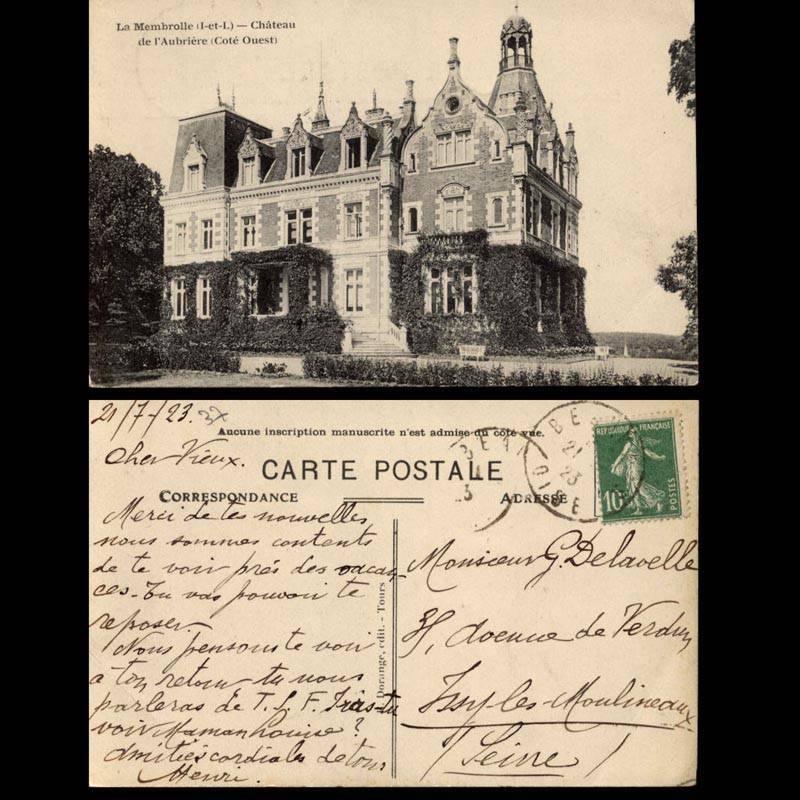 La Membrolle (I-et-L) — Château
de l'Aubrière (Coté Ouest)
21/7/23.
Aucune inscription manuscrite n'est admise du coté vue.
Cher Vieux.
CARTE POSTALE
CORRESPONDANCE
ADRESSE
REPUBLIQUE FRANÇAISE
10c
POSTES
OISE
Merci de tes nouvelles
nous sommes contents
de te voir prés des vacan-
ces. Tu vas pouvoir te
reposer.
Nous pensons te voir
a ton retour tu nous
parleras de T. S. F. Iras-tu
voir Maman Louise?
Amitiés cordiales de tous
Henri.
Dorange, édit. - Tours
Monsieur G. Delavelle
35, avenue de Verdun
Issy-les-Moulineaux
(Seine)